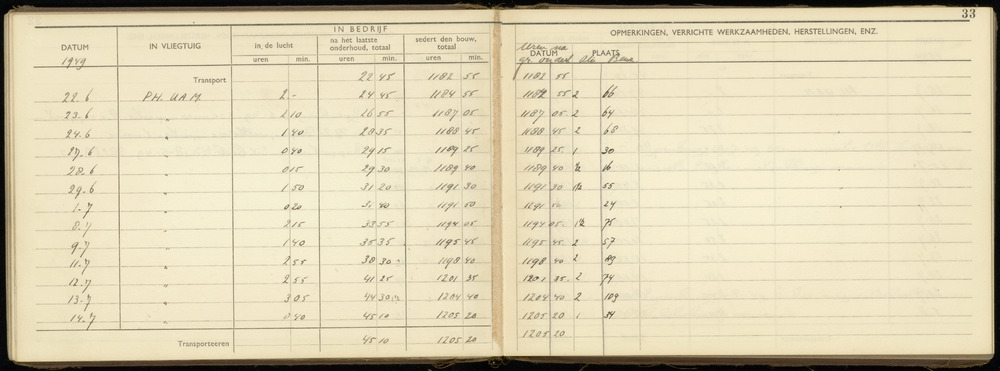 33
IN BEDRIJF
OPMERKINGEN, VERRICHTE WERKZAAMHEDEN, HERSTELLINGEN, ENZ.
DATUM IN VLIEGTUIG in de lucht na het laatste onderhoud, totaal sedert den bouw, totaal Uren na DATUM PLAATS
1949 uren min. uren min. uren min. Olie
Transport 22 45 1182 55 1182 55
22.6 PH. UAM. 2.- 24 45 1184 55 1184 55 2 66
23.6 " 2 10 26 55 1187 05 1187 05 2 64
24.6 " 1 40 28 35 1188 45 1188 45 2 68
27.6 " 0 40 29 15 1189 25 1189 25 1 30
28.6 " 0 15 29 30 1189 40 1189 40 ½ 16
29.6 " 1 50 31 20 1191 30 1191 30 1½ 55
1.7 " 0 20 31 40 1191 50 1191 50 24
8.7 " 2 15 33 55 1194 05 1194 05 1½ 75
9.7 " 1 40 35 35 1195 45 1195 45 2 57
11.7 " 2 55 38 30 1198 40 1198 40 2 89
12.7 " 2 55 41 25 1201 35 1201 35 2 74
13.7 " 3 05 44 30 1204 40 1204 40 2 109
14.7 " 0 40 45 10 1205 20 1205 20 1 34
Transporteeren 45 10 1205 20 1205 20